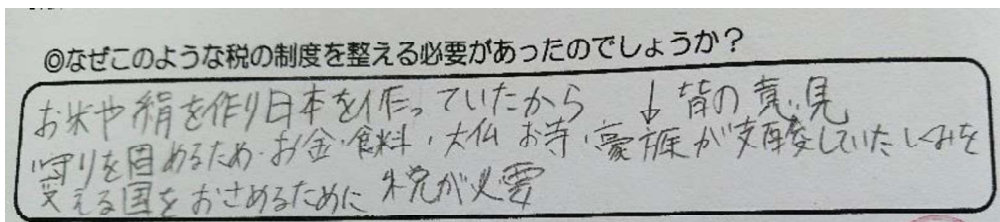 ◎なぜこのような税の制度を整える必要があったのでしょうか？
お米や絹を作り日本を作っていたから ↓皆の意見
守りを固めるため・お金・食料・大仏 お寺・豪族が支配していたしくみを
変える国をおさめるために 税が必要